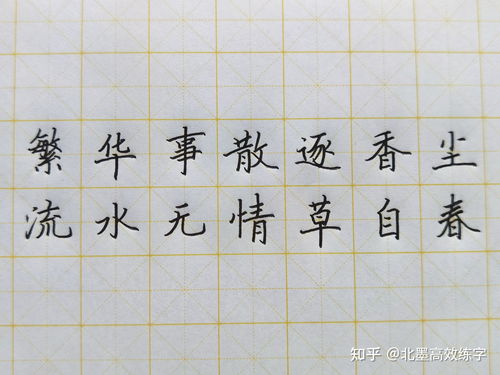 繁华事散逐香尘
流水无情草自春
知乎 @北墨高效练字